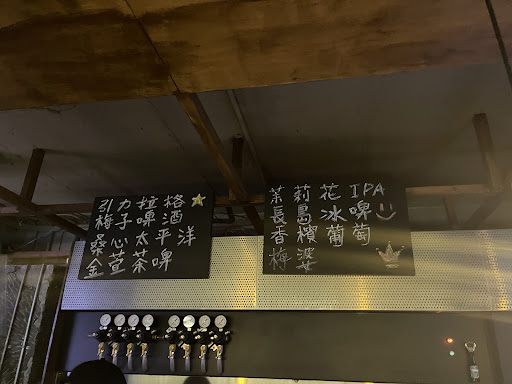 引力拉格
梅子啤酒
桑心太平洋
金萱茶啤
茉莉花 IPA
長島冰啤
香檳葡萄
梅波